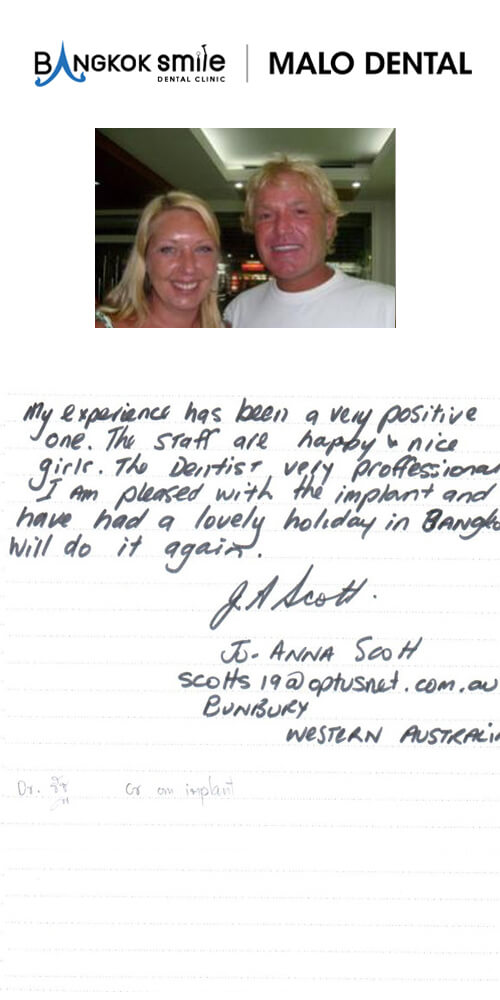 BANGKOK smile
DENTAL CLINIC
MALO DENTAL
My experience has been a very positive
one. The staff are happy & nice
girls. The Dentist very proffessional
I am pleased with the implant and
have had a lovely holiday in BANGKO
Will do it again.
J.A Scott.
JO-ANNA SCOTT
scotts19@optusnet.com.au
BUNBURY
WESTERN AUSTRALIA
Dr.
Cr on implant